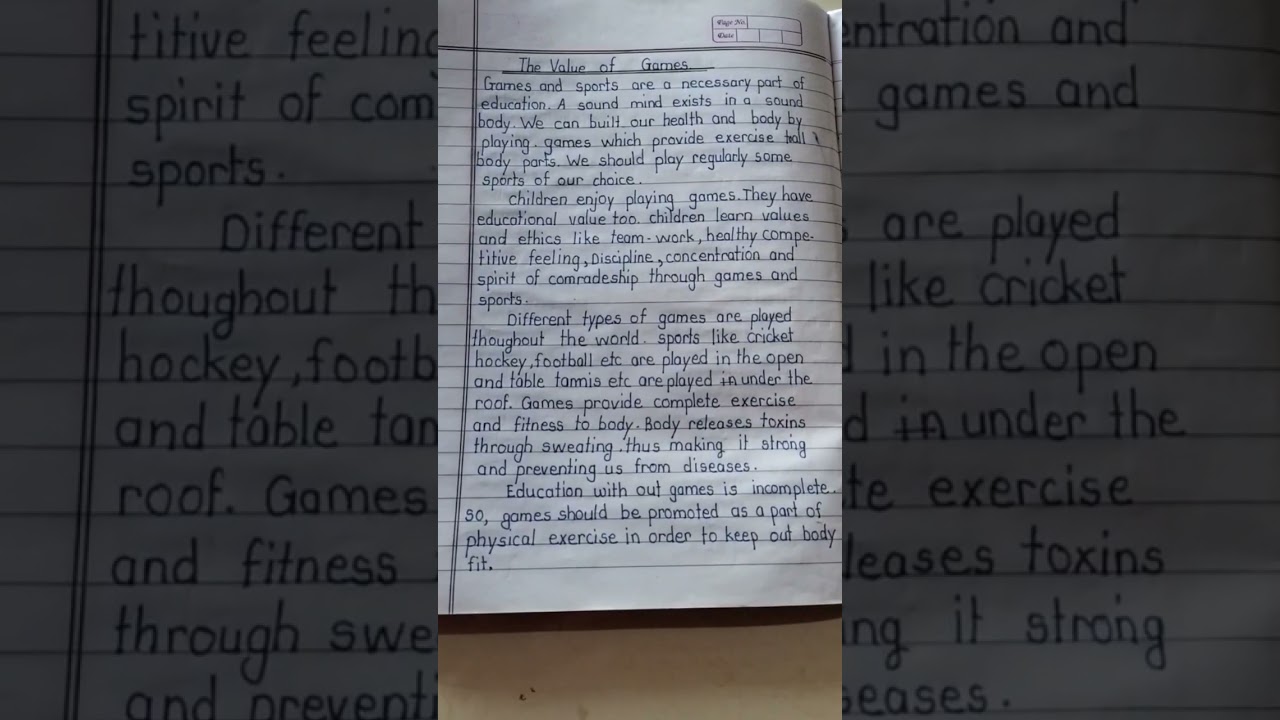 Page No.
Date
The Value of Games
Games and sports are a necessary part of
education. A sound mind exists in a sound
body. We can built our health and body by
playing games which provide exercise
body parts. We should play regularly some
sports of our choice.
children enjoy playing games. They have
educational value too. children learn values
and ethics like team-work, healthy compe-
titive feeling, Discipline, concentration and
spirit of comradeship through games and
sports.
Different types of games are played
thoughout the world. sports like cricket
hockey, football etc are played in the open
and table tannis etc are played in under the
roof. Games provide complete exercise
and fitness to body. Body releases toxins
through sweating. thus making it strong
and preventing us from diseases.
Education with out games is incomplete.
so, games should be promoted as a part of
physical exercise in order to keep out body
fit.